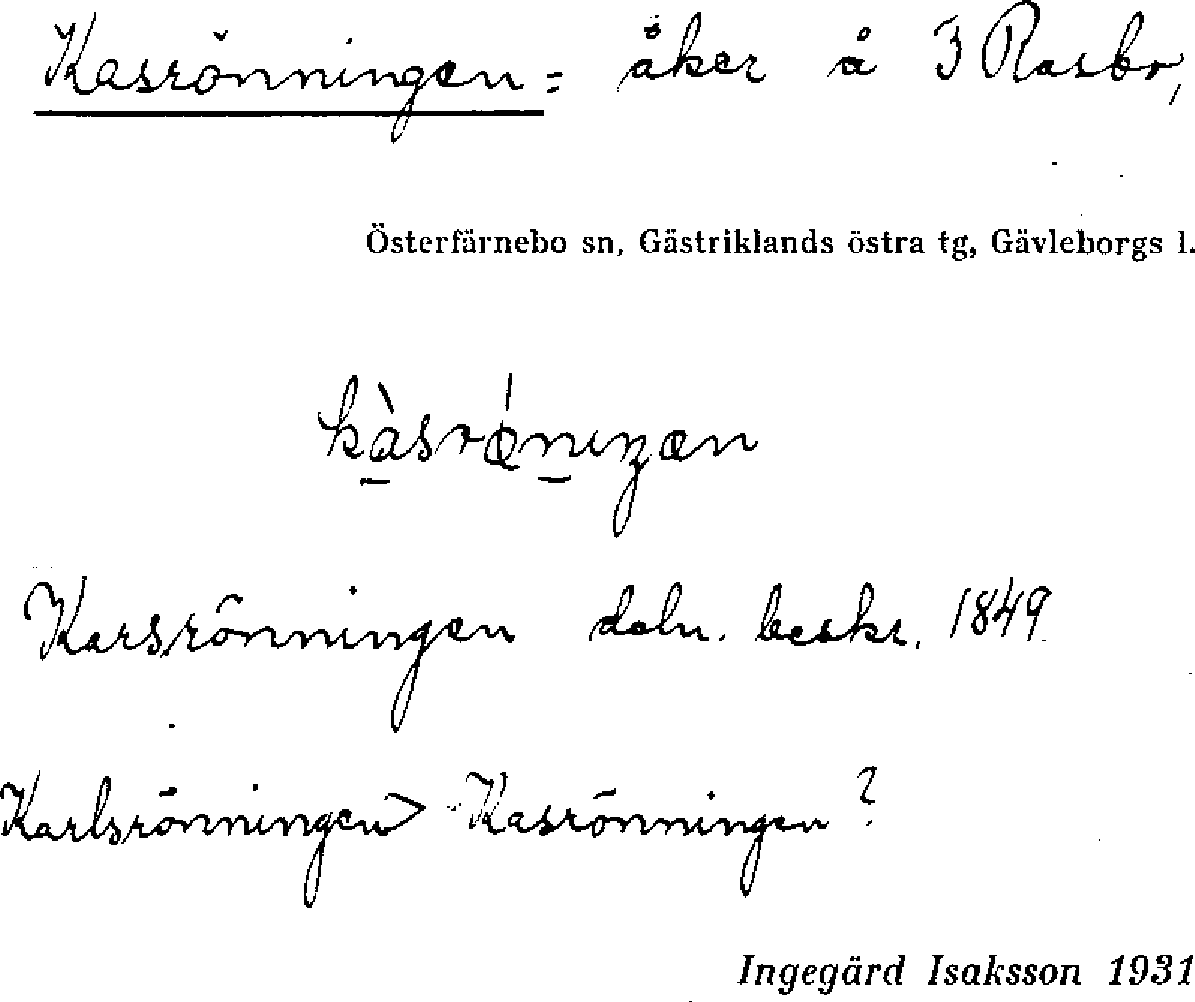 Kasrönningen = åker å 3 Rasbo,
Österfärnebo sn, Gästriklands östra tg, Gävleborgs l.
Karsrönningen deln. beskr. 1849
Karlsrönningen > Kasrönningen ?
Ingegärd Isaksson 1931